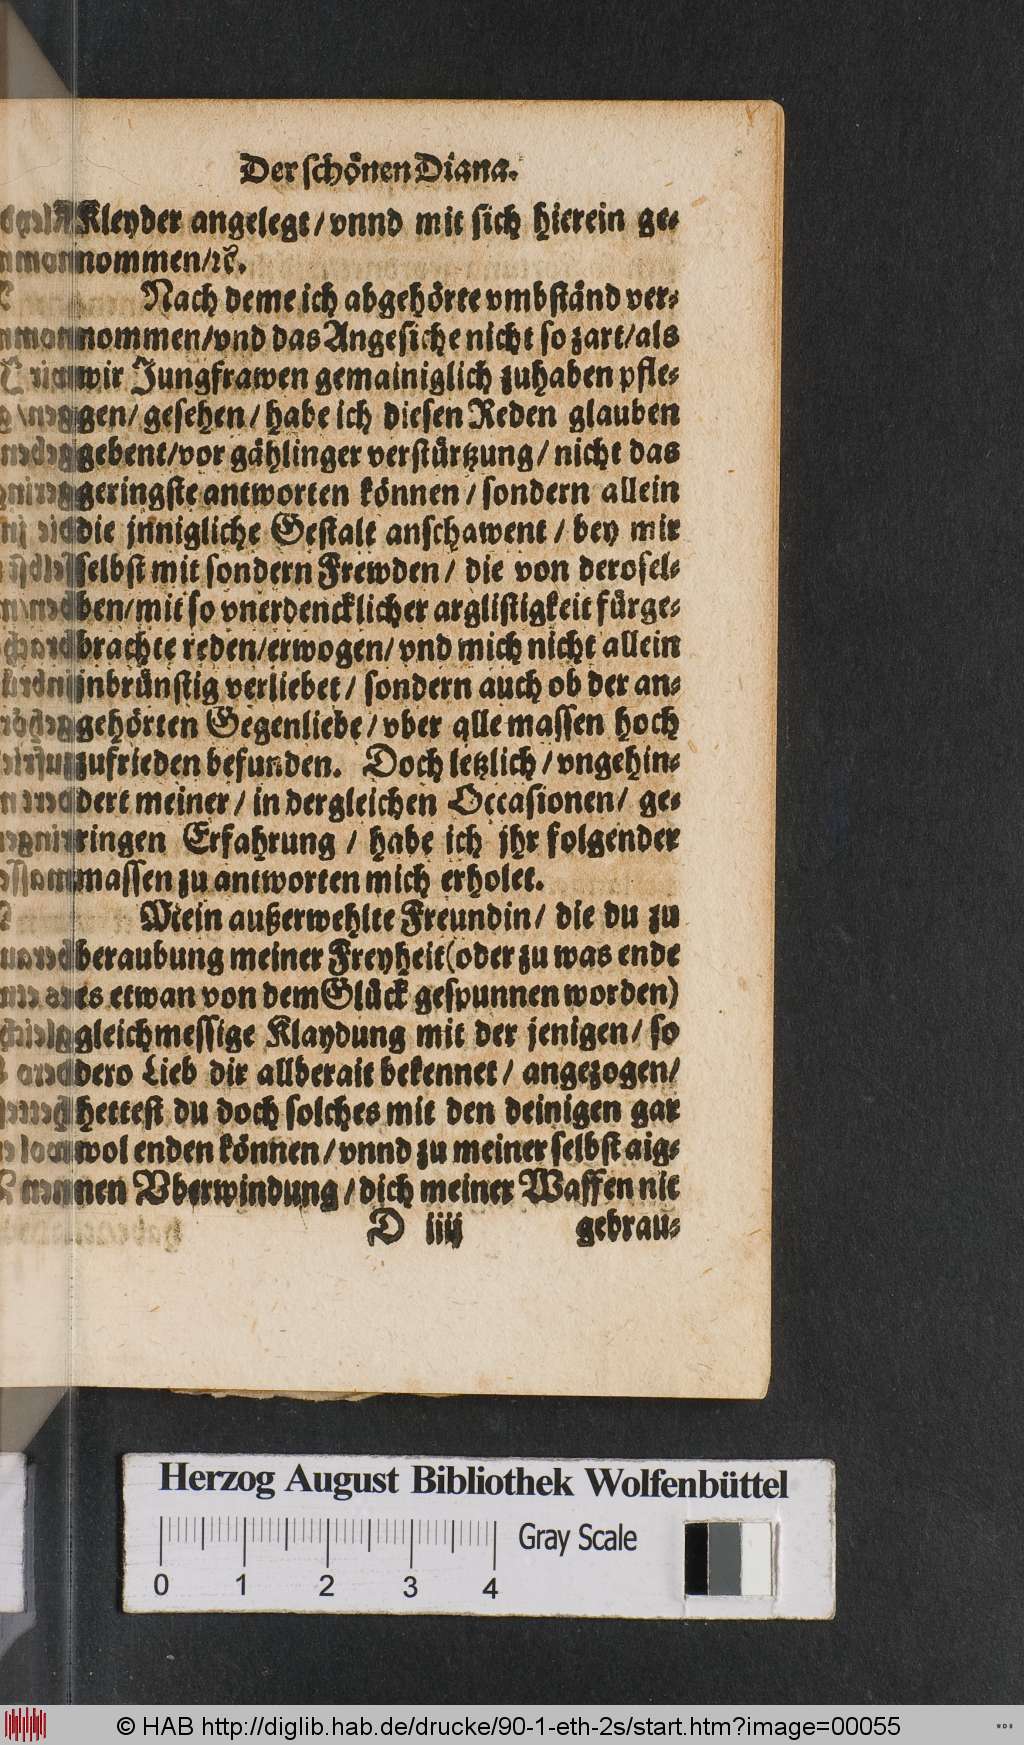 Der schönen Diana.
Kleyder angelegt / vnnd mit sich hierein ge-
nommen/ꝛc.
Nach deme ich abgehörte vmbständ ver-
nommen/vnd das Angesiche nicht so zart/als
wir Jungfrawen gemainiglich zuhaben pfle-
gen/ gesehen/ habe ich diesen Reden glauben
gebent/vor gählinger verstürtzung/ nicht das
geringste antworten können / sondern allein
die jnnigliche Gestalt anschawent / bey mir
selbst mit sondern Frewden/ die von derosel-
ben/mit so vnerdencklicher arglistigkeit fürge-
brachte reden/erwogen/ vnd mich nicht allein
jnbrünstig verliebet/ sondern auch ob der an-
gehörten Gegenliebe/ vber alle massen hoch
zufrieden befunden. Doch letzlich/ vngehin-
dert meiner/ in dergleichen Occasionen/ ge-
ringen Erfahrung / habe ich jhr folgender
massen zu antworten mich erholet.
Mein außerwehlte Freundin/ die du zu
beraubung meiner Freyheit(oder zu was ende
es etwan von dem Glück gespunnen worden)
gleichmessige Klaydung mit der jenigen/ so
dero Lieb dir allberait bekennet/ angezogen/
hettest du doch solches mit den deinigen gar
wol enden können/ vnnd zu meiner selbst aig-
nen Vberwindung/ dich meiner Waffen nit
D iiij gebrau-
Herzog August Bibliothek Wolfenbüttel
Gray Scale
0 1 2 3 4
© HAB http://diglib.hab.de/drucke/90-1-eth-2s/start.htm?image=00055